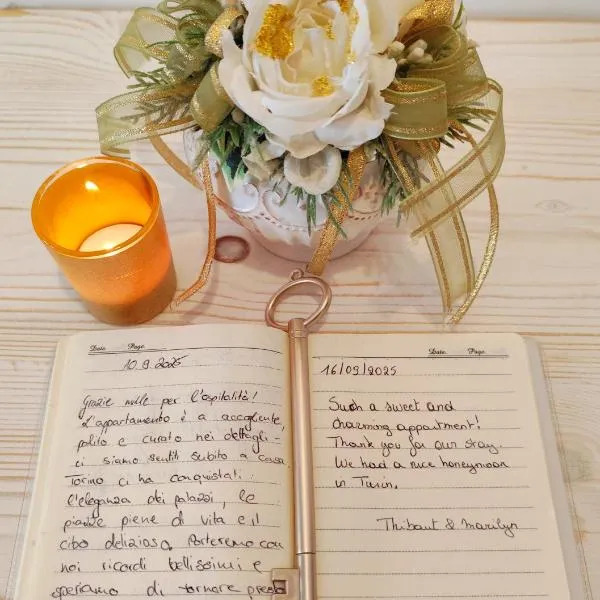 Date. Page.
10.9.2025
Grazie mille per l'ospitalità!
L'appartamento è a accogliente,
pulito e curato nei dettagli -
ci siamo sentiti subito a casa.
Torino ci ha conquistati:
l'eleganza dei palazzi, le
piazze piene di vita e il
cibo delizioso. Porteremo con
noi ricordi bellissimi e
speriamo di tornare presto
Date. Page.
16/09/2025
Such a sweet and
charming appartment!
Thank you for our stay.
We had a nice honeymoon
in Turin.
Thibaut & Marilyn